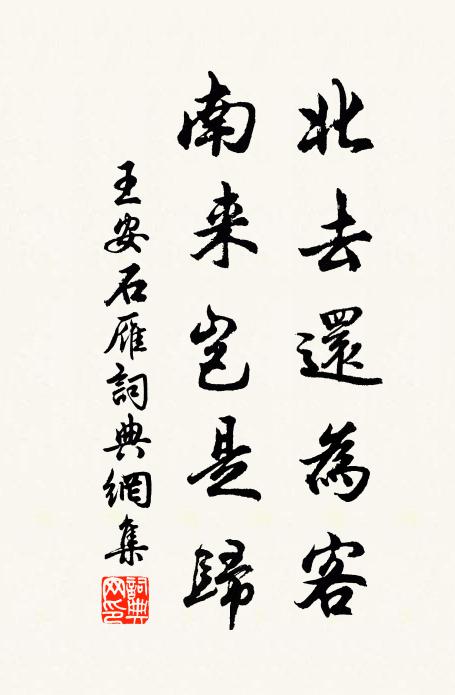 北去還為客
南来豈是歸
王安石雁詞典網集
詞典
网印